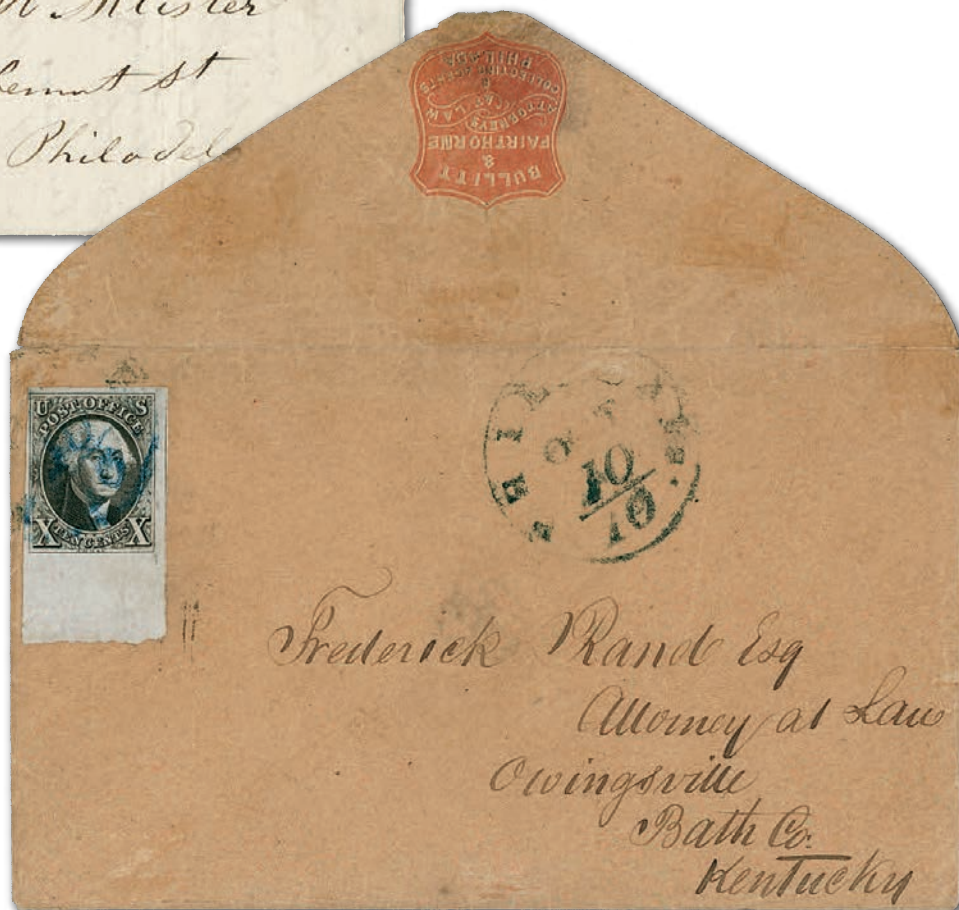 Philadel
BULLITT
&
FAIRTHORNE
ATTORNEYS AT LAW
&
COLLECTING AGENTS
PHILADA
U S
POST OFFICE
X TEN CENTS X
PHIL
10
10
Frederick Rand Esq
Attorney at Law
Owingsville
Bath Co.
Kentucky